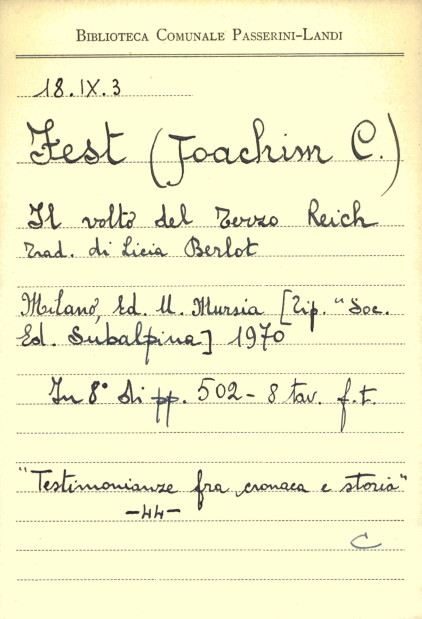 Biblioteca Comunale Passerini-Landi
18.IX.3
Fest (Joachim C.)
Il volto del Terzo Reich
Trad. di Licia Berlot
Milano, Ed. U. Mursia [Tip. "Soc.
Ed. Subalpina] 1970
In 8° di pp. 502 - 8 tav. f.t.
"Testimonianze fra cronaca e storia"
-44-
C